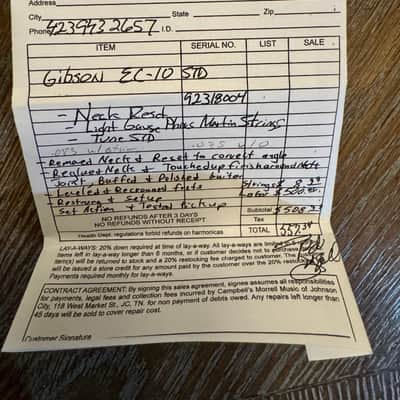 Address
City State Zip
Phone 4239432657 I.D.
ITEM SERIAL NO. LIST SALE
Gibson EC-10 STD
92318004
- Neck Reset
- Light Gauge Phos Martin Strings
- Tune STD
- Removed Neck & Reset to correct angle
- Reglued Neck & Touched up finish around Neck
Joint Buffed & Polished guitar
- Leveled & Recrowned frets
- Restrung & Setup
Set Action & Tested Pickup
Strings
Labor $500.00
NO REFUNDS AFTER 3 DAYS
NO REFUNDS WITHOUT RECEIPT
Subtotal
Tax
Health Dept. regulations forbid refunds on harmonicas
TOTAL
LAY-A-WAYS: 20% down required at time of lay-a-way. All lay-a-ways are limited
items left in lay-a-way longer than 6 months, or if customer decides not to purchase
item(s) will be returned to stock and a 20% restocking fee charged to customer. The
will be issued a store credit for any amount paid by the customer over the 20% restocking
Payments required monthly for lay-a-ways.
CONTRACT AGREEMENT: By signing this sales agreement, signes assumes all responsibilities
for payments, legal fees and collection fees incurred by Campbell's Morrell Music of Johnson
City, 118 West Market St., JC, TN. for non payment of debts owed. Any repairs left longer than
45 days will be sold to cover repair cost.
Customer Signature